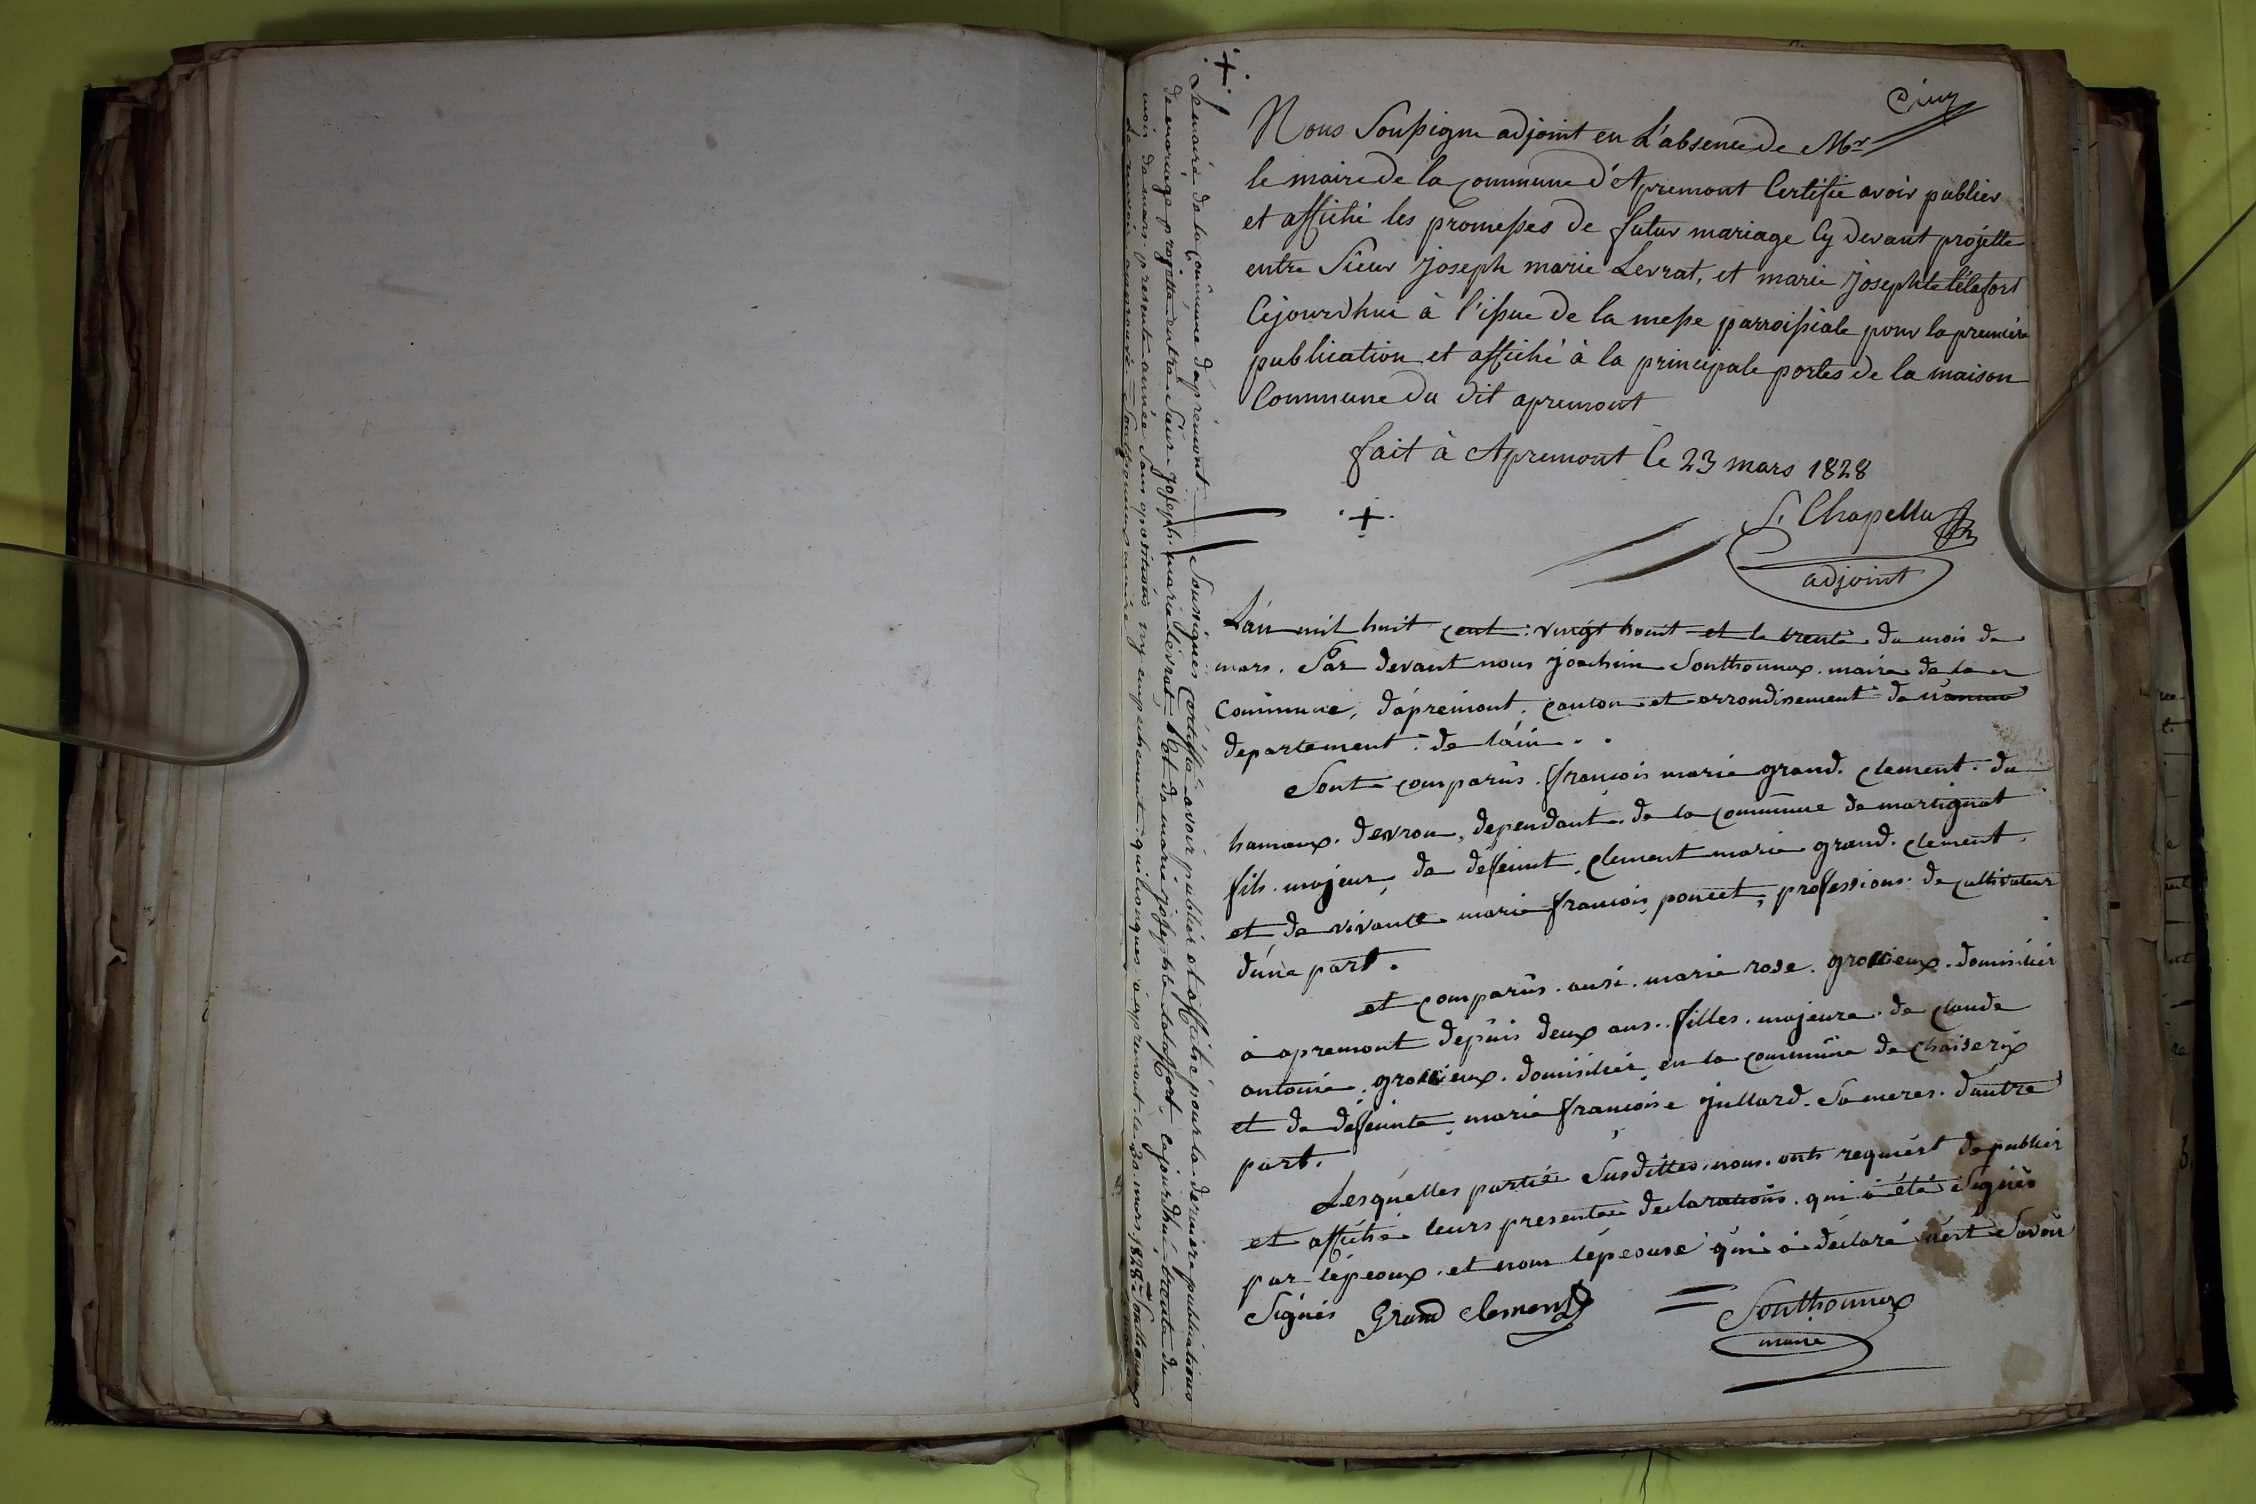 cinq
Nous Soussigne adjoint en L'absence de Mr
le maire de la Commune d'Apremont Certifie avoir publier
et affiché les promesses de futur mariage Cy devant projette
entre Sieur Joseph marie Levrat, et marie Josephte
Cejourdhui à l'issue de la messe parroissiale pour la premiere
publication et affiché à la principale portes de la maison
Commune du dit apremont
fait à Apremont le 23 mars 1828
+
Chapellu
adjoint
L'an mil huit cent vingt houit et le trente du mois de
mars. Par devant nous joachim Southonnax maire de la
Commune, dápremont, canton et arrondisement de
departement de láin
Sont comparûs françois marie grand clement du
hameaux devron, dependant de la commune de martignat
fils majeur, de défeunt clement marie grand clement
et de vivante marie françois poncet, professions de cultivateur
dúne part.
et comparûs ausi marie rose domisiliér
à apremont depuis deux ans filles majeure de claude
antoine domisiliér en la commúne de
et de défeunte marie françoise Jullard Sa meres dautre
part.
Lesquelles partie Susdittes nous onts requiérst de publiér
et affiché leurs presentée declarations qui à été Signés
par lépeoux et nom lépeouse qui à déclaré Savoir
Signés Grand Clement Southonnax
maire
+ Le maire de la Commune dápremont Soussignés Certiffié avoir publiér et affiché pour la derniere publications
de mariage projettée entre Sieur Joseph marie lévrat et de marie josephte cejourdhui trente du
mois de mars presente année Sans opotitions ny empechement quélconques à apremont le 30 mars 1828 Southonnax
Le renvoir approuvée Southonnax maire